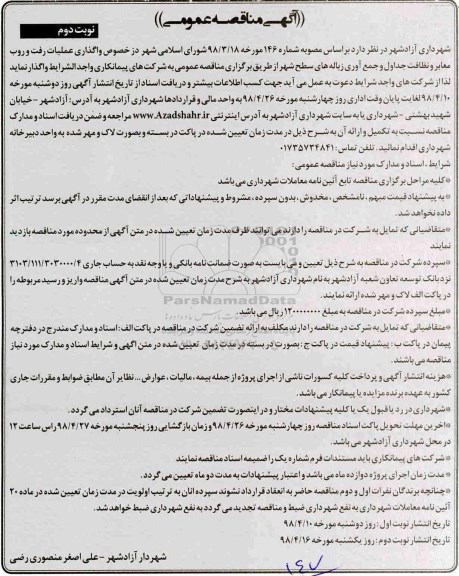 ((آگهی مناقصه عمومی))
نوبت دوم
شهرداری آزادشهر در نظر دارد براساس مصوبه شماره ۱۴۶ مورخه ۹۸/۳/۱۸ شورای اسلامی شهر در خصوص واگذاری عملیات رفت و روب
معابر و نظافت جداول و جمع آوری زباله های سطح شهر از طریق برگزاری مناقصه عمومی به شرکت های پیمانکاری واجد الشرایط واگذار نماید
لذا از شرکت های واجد شرایط دعوت به عمل می آید جهت کسب اطلاعات بیشتر و دریافت اسناد از تاریخ انتشار آگهی روز دوشنبه مورخه
۹۸/۴/۱۰ لغایت پایان وقت اداری روز چهارشنبه مورخه ۹۸/۴/۲۶ به واحد مالی و قراردادها شهرداری آزادشهر به آدرس: آزادشهر - خیابان
شهید بهشتی - شهرداری یا به سایت شهرداری آزادشهر به آدرس اینترنتی www.Azadshahr.ir مراجعه و ضمن دریافت اسناد و مدارک
مناقصه نسبت به تکمیل و ارائه آن به شرح ذیل در مدت زمان تعیین شده در پاکت در بسته و بصورت لاک و مهر شده به واحد دبیرخانه
شهرداری اقدام نمایند. تلفن تماس: ۰۱۷۳۵۷۳۴۸۴۱
شرایط، اسناد و مدارک مورد نیاز مناقصه عمومی:
*کلیه مراحل برگزاری مناقصه تابع آئین نامه معاملات شهرداری می باشد
*به پیشنهاد قیمت مبهم، نامشخص، مخدوش، بدون سپرده، مشروط و پیشنهاداتی که بعد از انقضای مدت مقرر در آگهی برسد ترتیب اثر
داده نخواهد شد.
*متقاضیانی که تمایل به شرکت در مناقصه را دارند می توانند ظرف مدت زمان تعیین شده در متن آگهی از محدوده مورد مناقصه بازدید
نمایند
*سپرده شرکت در مناقصه به شرح ذیل تعیین و می بایست به صورت ضمانت نامه بانکی و یا وجه نقد به حساب جاری ۳۱۰۳/۱۱۱/۳۰۳۰۰۰۰/۴
نزد بانک توسعه تعاون شعبه آزادشهر به نام شهرداری آزادشهر به شرح مدت زمان تعیین شده در متن آگهی مناقصه واریز و رسید مربوطه را
در پاکت الف لاک و مهر شده ارائه نمایند.
*مبلغ سپرده شرکت در مناقصه به مبلغ ۱۲۰۰۰۰۰۰۰۰ ریال می باشد
*متقاضیانی که تمایل به شرکت در مناقصه را دارند مکلف به ارائه تضمین شرکت در مناقصه در پاکت الف: اسناد و مدارک مندرج در دفترچه
پیمان در پاکت ب: پیشنهاد قیمت در پاکت ج: بصورت در بسته در مدت زمان تعیین شده در متن آگهی و شرایط اسناد و مدارک مورد نیاز
مناقصه می باشند.
*هزینه انتشار آگهی و پرداخت کلیه کسورات ناشی از اجرای پروژه از جمله بیمه، مالیات، عوارض... نظایر آن مطابق ضوابط و مقررات جاری
کشور به عهده برنده مزایده یا پیمانکار می باشد.
*شهرداری در رد یا قبول یک یا کلیه پیشنهادات مختار و در اینصورت تضمین شرکت در مناقصه آنان استرداد می گردد.
*آخرین مهلت تحویل پاکت اسناد مناقصه روز چهارشنبه مورخه ۹۸/۴/۲۶ و زمان بازگشایی روز پنجشنبه مورخه ۹۸/۴/۲۷ راس ساعت ۱۲
در محل شهرداری آزادشهر می باشد.
*شرکت های پیمانکاری باید مستندات فرم شماره یک را ضمیمه اسناد مناقصه نمایند
*مدت زمان اجرای پروژه دوازده ماه می باشد و اعتبار پیشنهادات به مدت دو ماه تعیین می گردد.
*چنانچه برندگان نفرات اول و دوم مناقصه حاضر به انعقاد قرارداد نشوند سپرده انان به ترتیب اولویت در مدت زمان تعیین شده در ماده ۲۰
آئین نامه معاملات شهرداری به نفع شهرداری ضبط و مناقصه تجدید می گردد به نفع شهرداری ضبط خواهد شد.
تاریخ انتشار نوبت اول: روز دوشنبه مورخه ۹۸/۴/۱۰
تاریخ انتشار نوبت دوم: روز یکشنبه مورخه ۹۸/۴/۱۶
شهردار آزادشهر - علی اصغر منصوری رضی
ParsNamadData